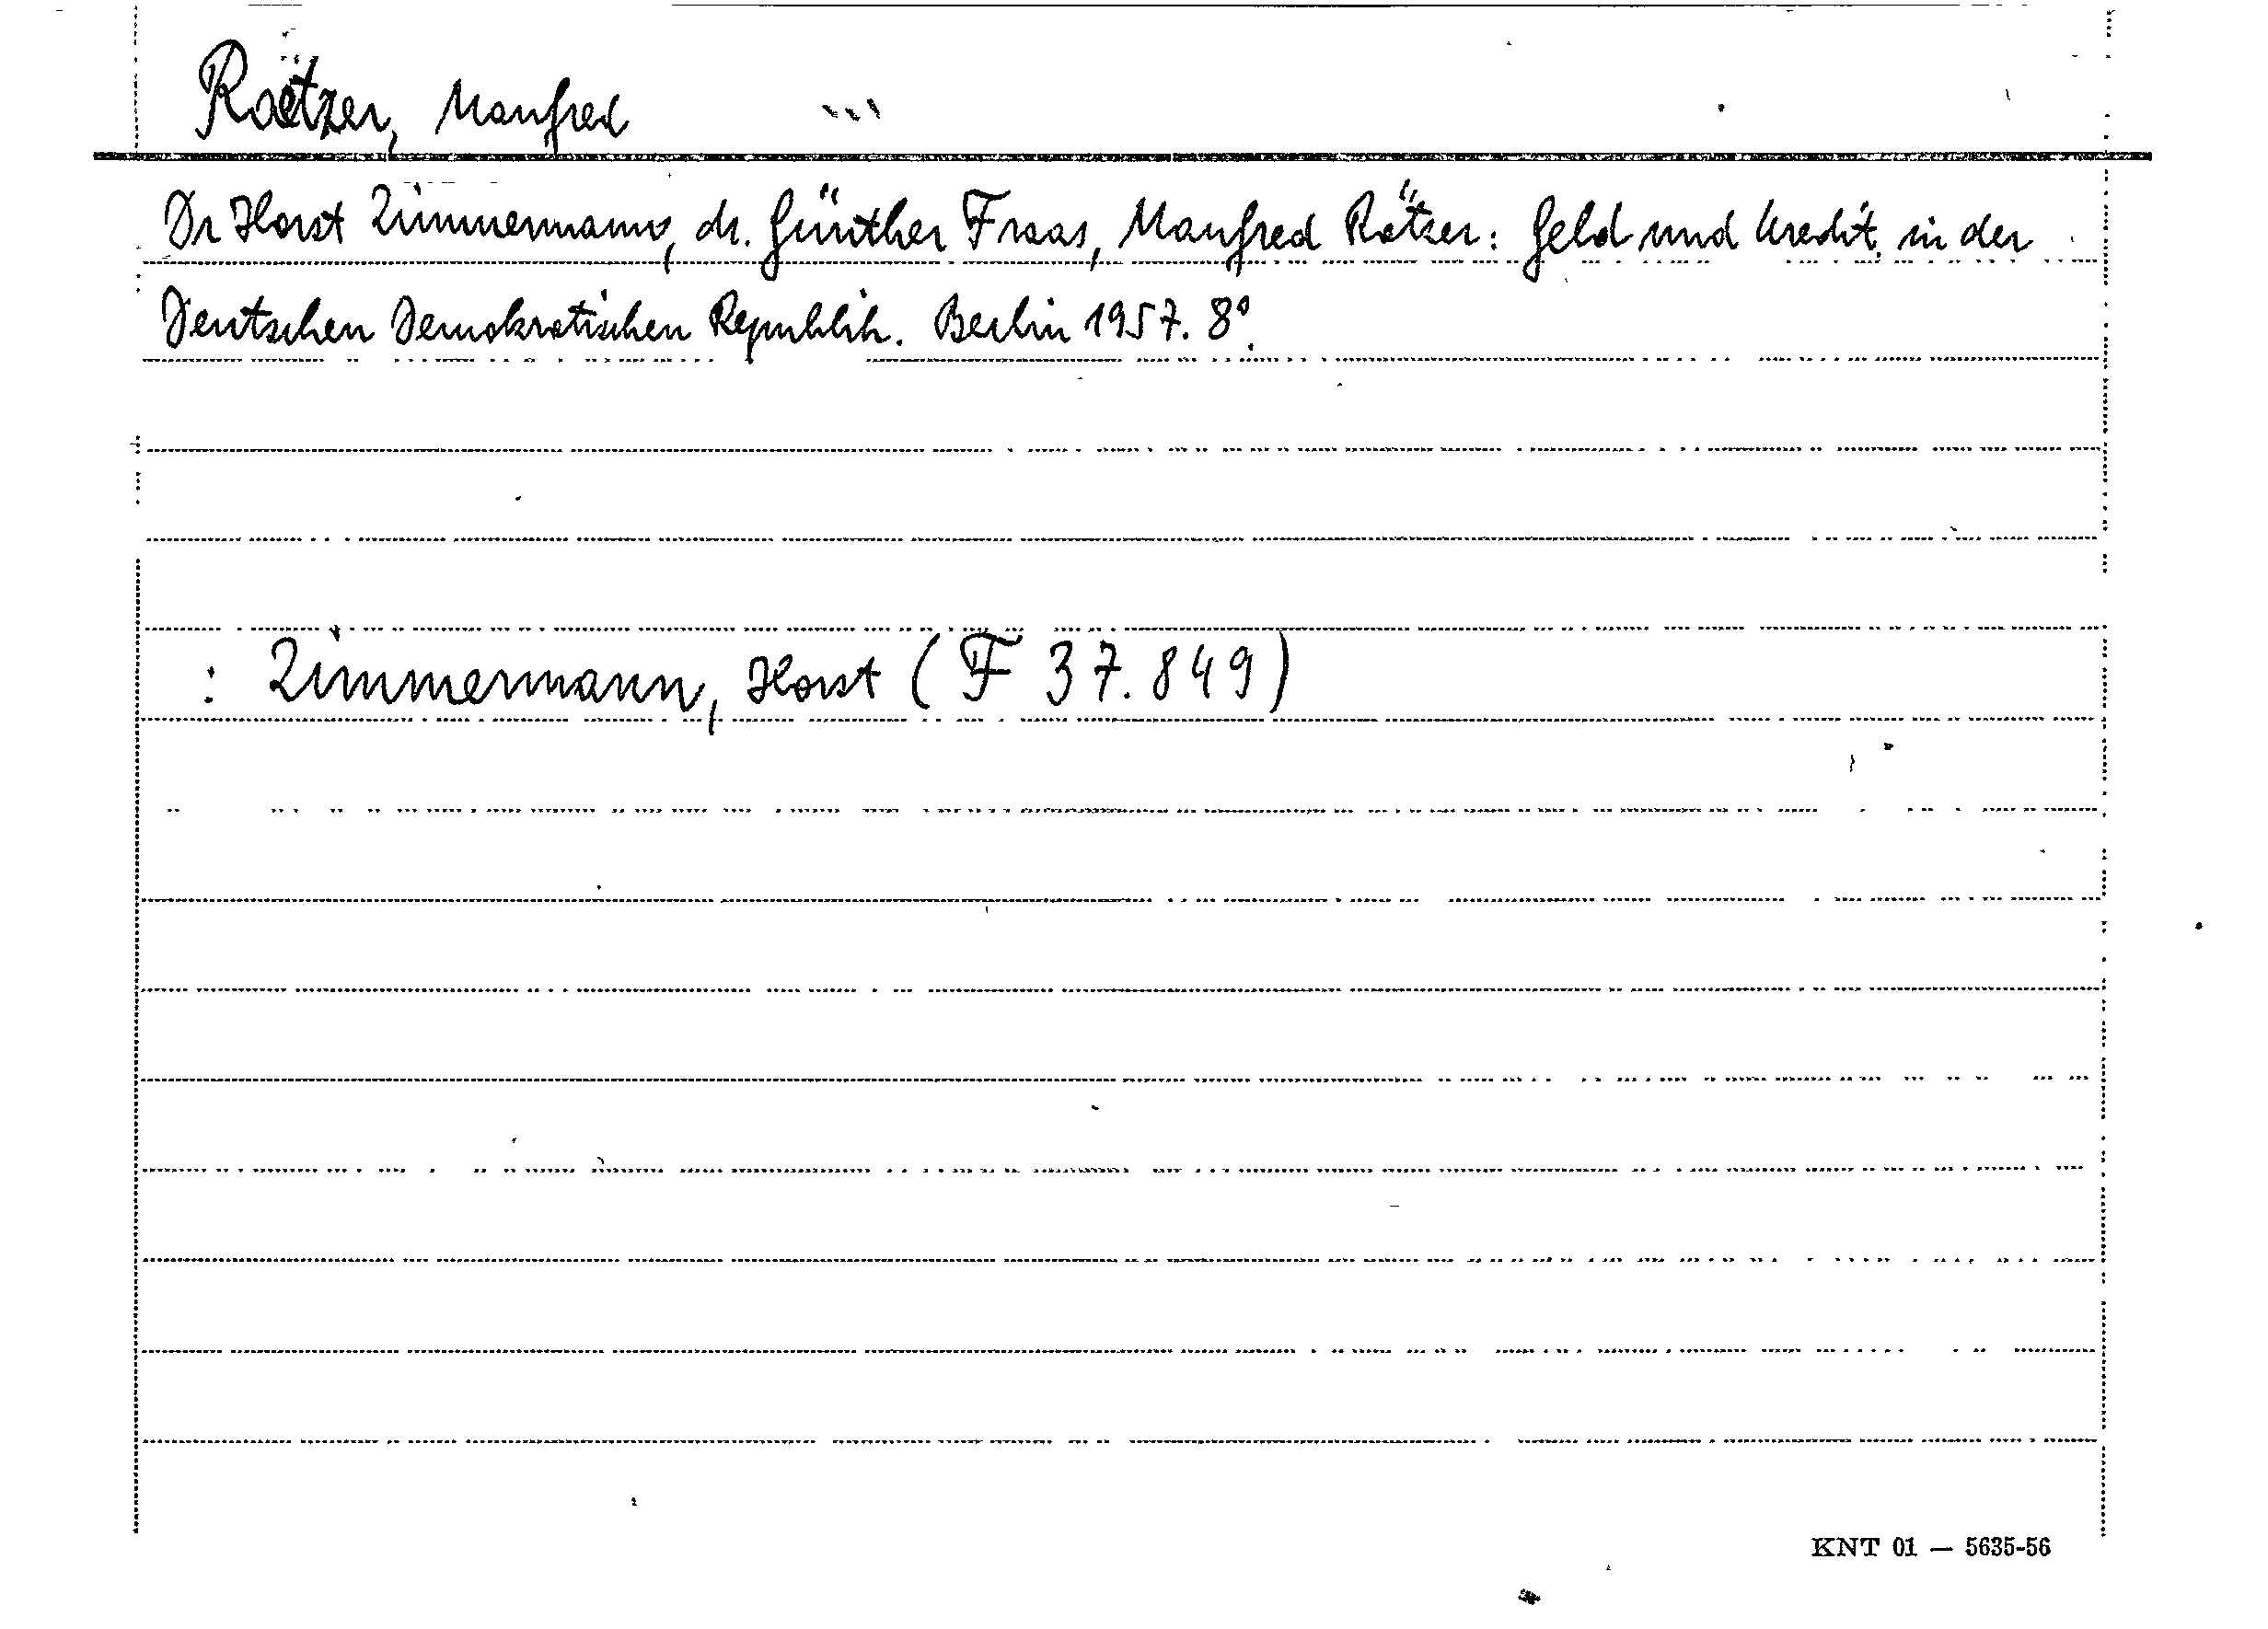 Rätzer, Manfred
Dr Horst Zimmermann, dr. Günther Fraas, Manfred Rätzer: Geld und Kredit in der
Deutschen Demokratischen Republik. Berlin 1957. 8°.
: Zimmermann, Horst (F 37.849)
KNT 01 — 5635-56